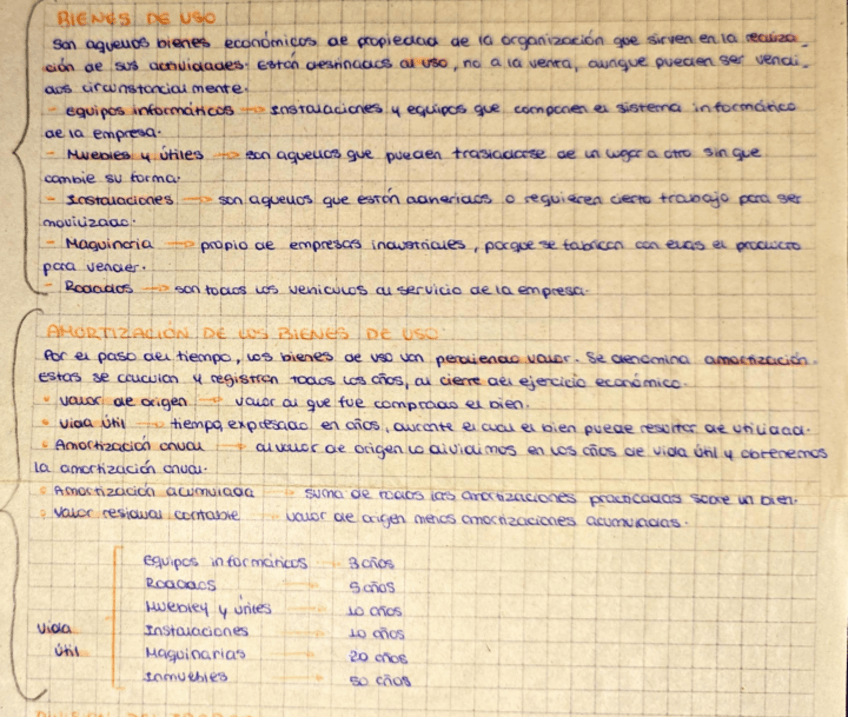 BIENES DE USO
Son aquellos bienes económicos de propiedad de la organización que sirven en la realiza-
ción de sus actividades. Están destinados al uso, no a la venta, aunque pueden ser vendi-
dos circunstancialmente.
- Equipos informáticos → Instalaciones y equipos que componen el sistema informático
de la empresa.
- Muebles y útiles → son aquellos que pueden trasladarse de un lugar a otro sin que
cambie su forma.
- Instalaciones → son aquellos que están adheridos o requieren cierto trabajo para ser
movilizado.
- Maquinaria → propio de empresas industriales, porque se fabrican con ellas el producto
para vender.
- Rodados → son todos los vehiculos al servicio de la empresa.
AMORTIZACIÓN DE LOS BIENES DE USO
Por el paso del tiempo, los bienes de uso van perdiendo valor. Se denomina amortización.
Estas se calculan y registran todos los años, al cierre del ejercicio económico.
• Valor de origen → valor al que fue comprado el bien.
• Vida útil → tiempo, expresado en años, durante el cual el bien puede resultar de utilidad.
• Amortización anual → al valor de origen lo dividimos en los años de vida útil y obtenemos
la amortización anual.
• Amortización acumulada → suma de todas las amortizaciones practicadas sobre un bien.
• Valor residual contable → valor de origen menos amortizaciones acumuladas.
Vida útil
Equipos informáticos → 3 años
Rodados → 5 años
Muebles y útiles → 10 años
Instalaciones → 10 años
Maquinarias → 20 años
Inmuebles → 50 años